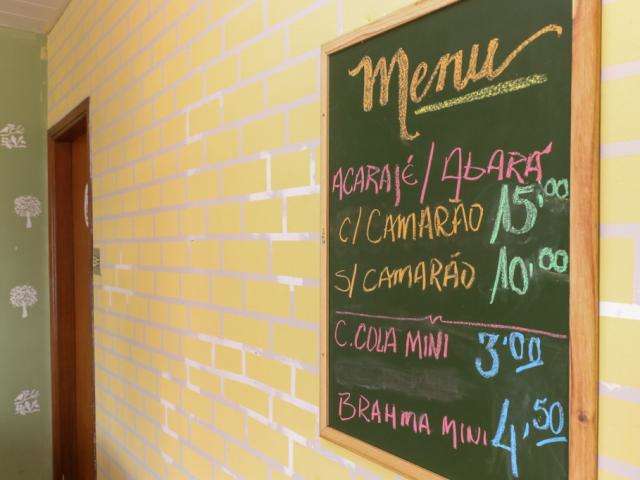 Menu
ACARAJÉ / ABARÁ
C/ CAMARÃO 15,00
S/ CAMARÃO 10,00
C. COLA MINI 3,00
BRAHMA MINI 4,50